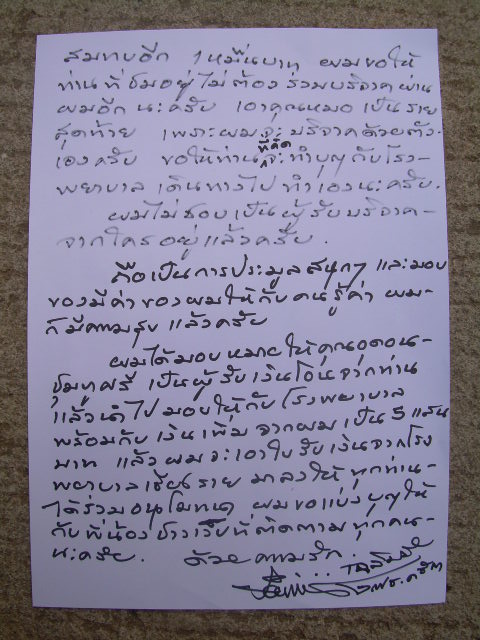 สมทบอีก 1 หมื่นบาท ผมขอให้
ท่านที่ชมอยู่ไม่ต้องร่วมบริจาคผ่าน
ผมอีกนะครับ เอาคุณหมอเป็นราย
สุดท้าย เพราะผมจะบริจาคด้วยตัว
เองครับ ขอให้ท่านที่คิดจะทำบุญกับโรง-
พยาบาล เดินทางไปทำเองนะครับ.
ผมไม่ชอบเป็นผู้รับบริจาค-
จากใครอยู่แล้วครับ.
ถือเป็นการประมูลสนุกๆ และมอบ
ของมีค่าของผมให้กับคนรู้ค่า ผม-
ก็มีความสุขแล้วครับ
ผมได้มอบหมายให้คุณอุดอน-
ชุมทูศรี เป็นผู้รับเงินโอนจากท่าน
แล้วนำไปมอบให้กับโรงพยาบาล
พร้อมกับเงินเพิ่มจากผมเป็น 5 แสน
บาท แล้วผมจะเอาใบรับเงินจากโรง
พยาบาลเชียงราย มาลงให้ทุกท่าน-
ได้ร่วมอนุโมทนา ผมขอแบ่งบุญให้
กับพี่น้องชาวเว็บที่ติดตามทุกคน-
นะครับ. ด้วยความรัก.